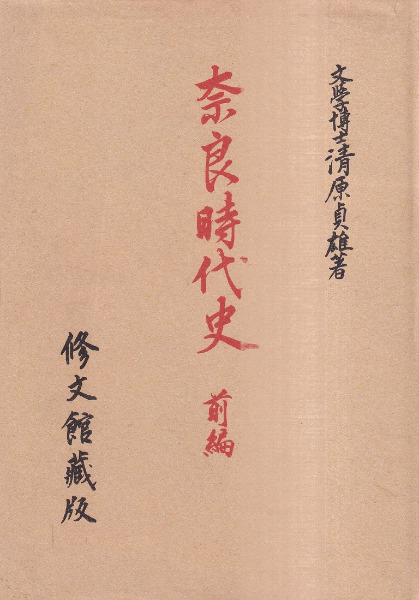 文學博士清原貞雄著
奈良時代史 前編
修文館藏版